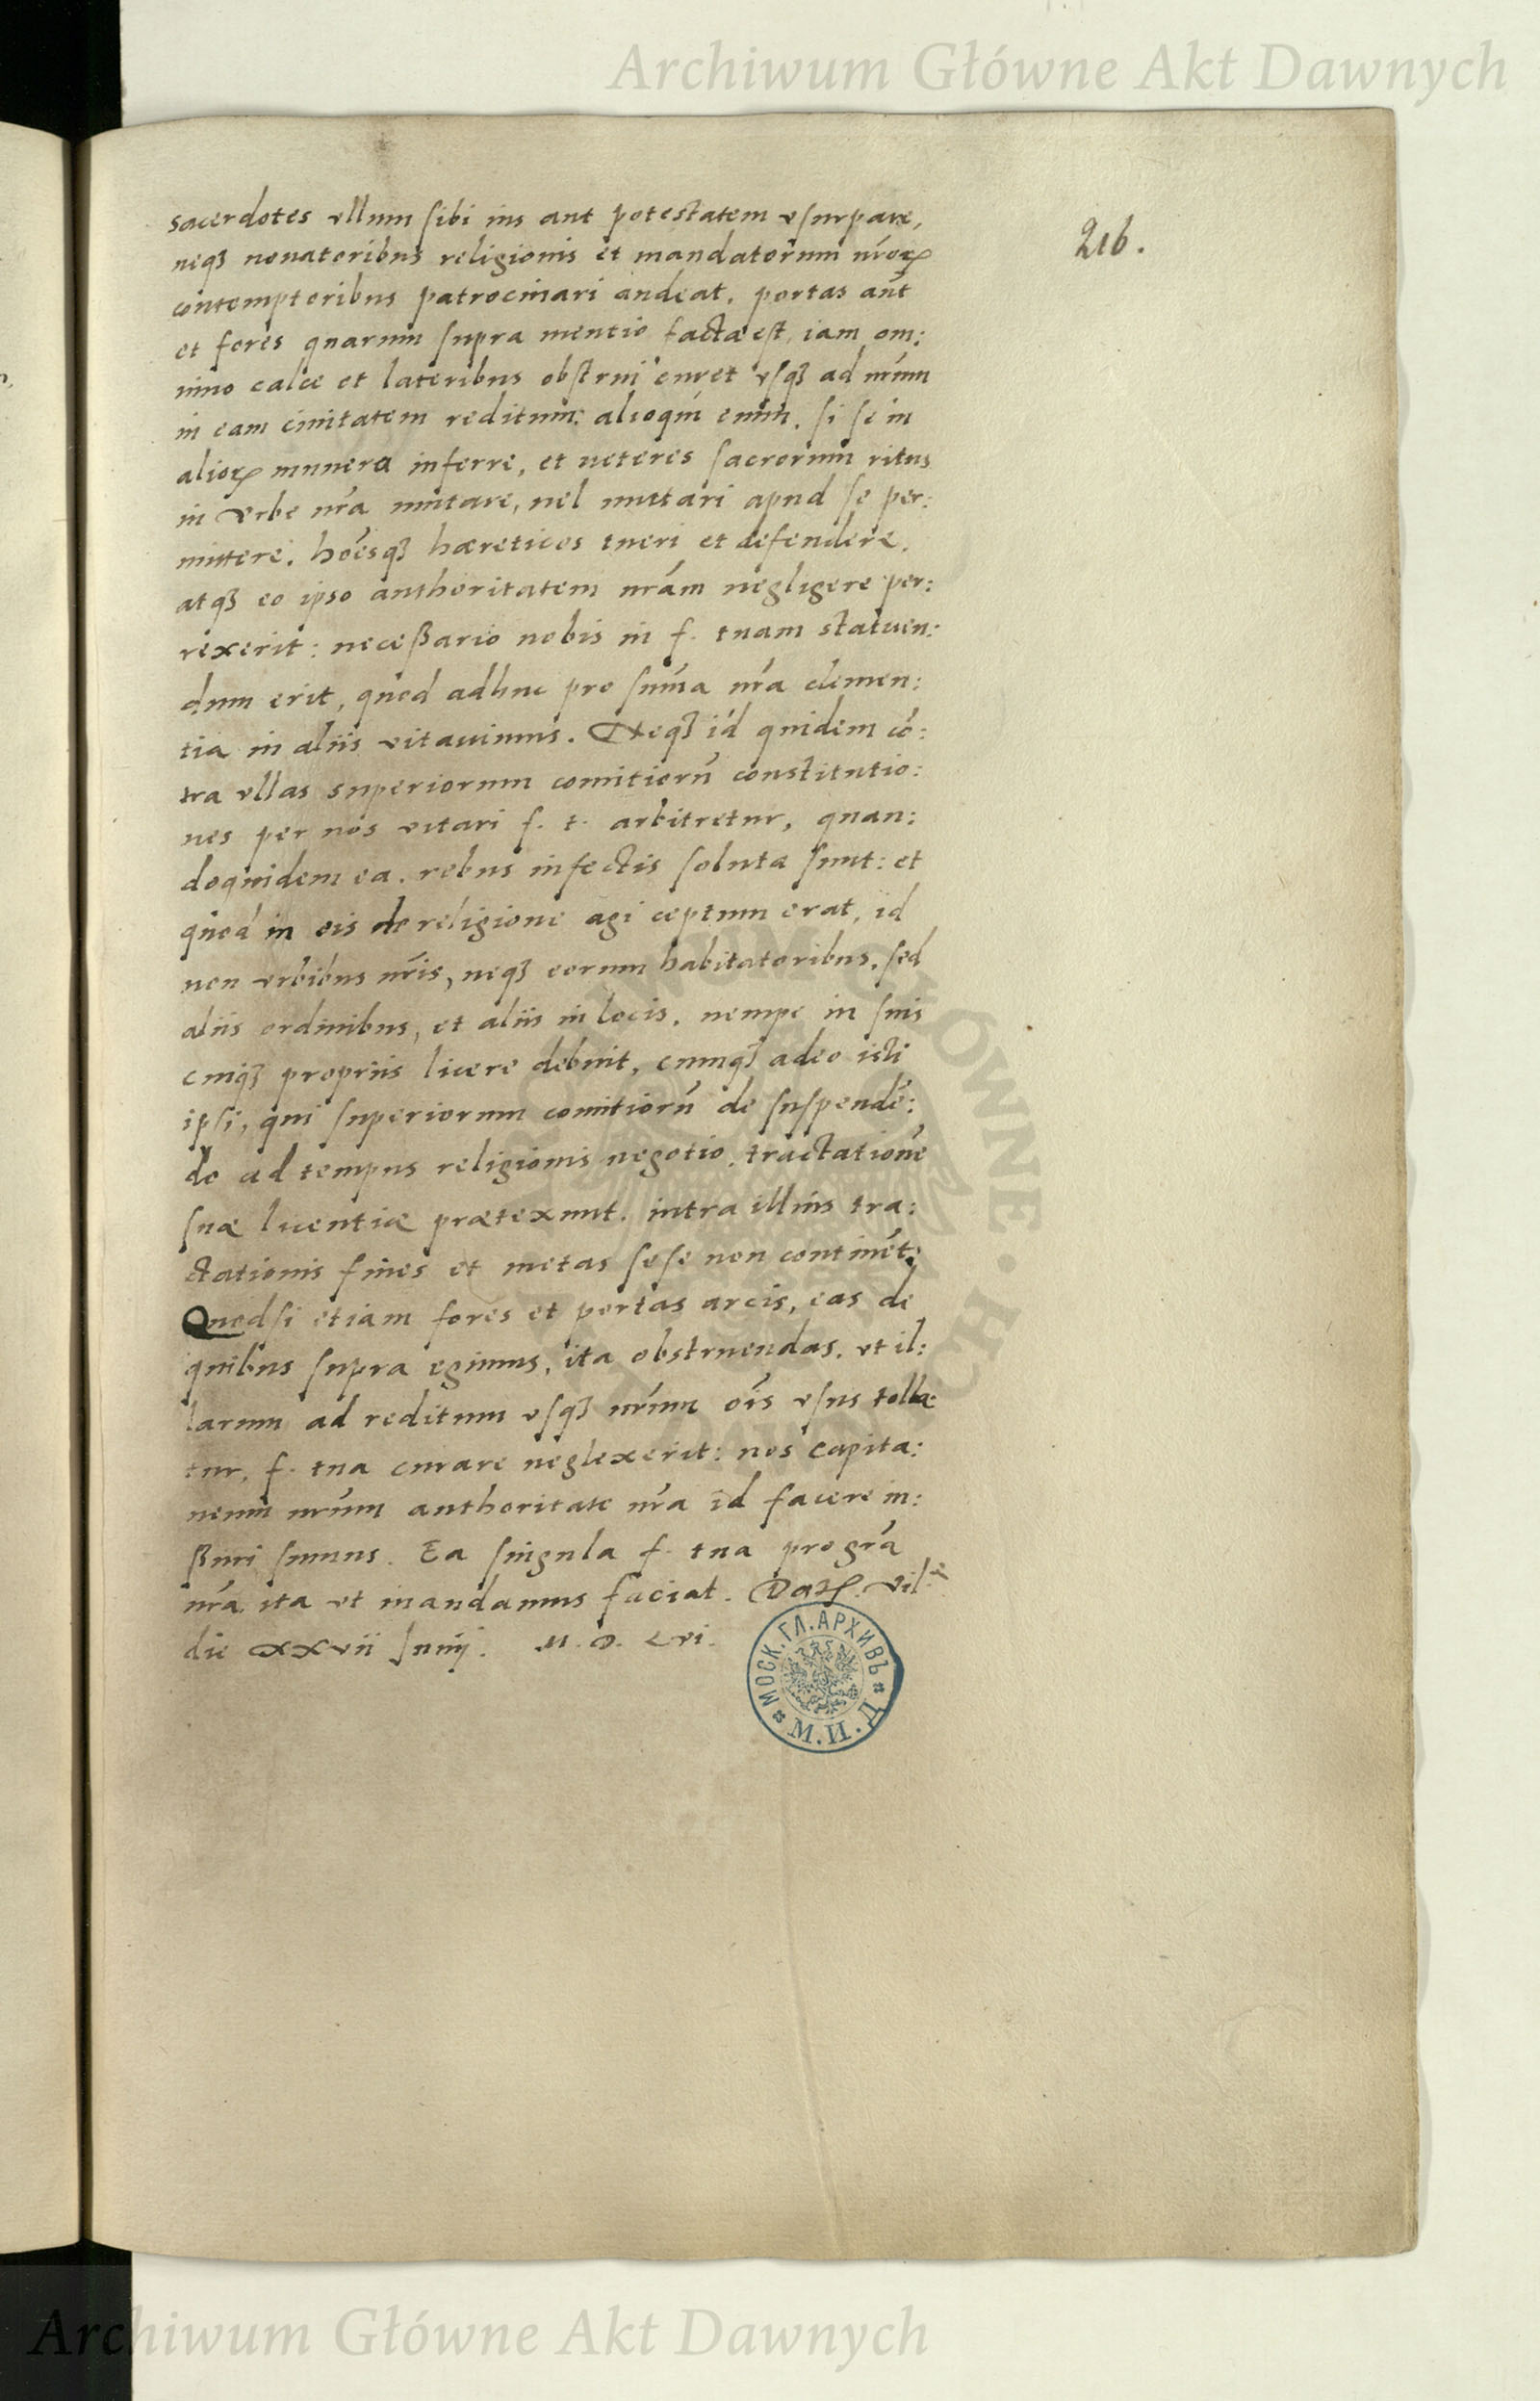 Archiwum Główne Akt Dawnych
216.
sacerdotes vllum sibi ius aut potestatem vsurpare,
neqȝ nouatoribus religionis et mandatorum nrōꝝ
contemptoribus patrocinari audeat, portas aūt
et fores quarum supra mentio facta est, iam om:
nino calce et lateribus obstrui curet vsqȝ ad nrūm
in eam ciuitatem reditum: alioquin enim, si se in
alioꝝ munera inferre, et ueteres sacrorum ritus
in vrbe nrā mutare, uel mutari apud se per:
mittere, hoēsqȝ hæreticos tueri et defendere,
atqȝ eo ipso authoritatem nrām negligere per:
rexerit: necessario nobis in f. tuam statuen:
dum erit, quod adhuc pro sūma nrā clemen:
tia in aliis vitauimus. Neqȝ id quidem cō:
tra vllas superiorum comitiorū constitutio:
nes per nos vitari f. t. arbitretur, quan:
doquidem ea, rebus infectis soluta sunt: et
quod in eis de religione agi ceptum erat, id
non vrbibus nrīs, neqȝ eorum habitatoribus, sed
aliis ordinibus, et aliis in locis, nempe in suis
cuiqȝ propriis licere debuit, cumqȝ adeo isti
ipsi, qui superiorum comitiorū de suspendē:
do ad tempus religionis negotio, tractationē
suæ licentiæ prætexunt, intra illius tra:
ctationis fines et metas sese non continēt:
Quodsi etiam fores et portas arcis, eas de
quibus supra egimus, ita obstruendas, vt il:
larum ad reditum vsqȝ nrūm oīs vsus tolla:
tur, f. tua curare neglexerit: nos capita:
neum nrūm authoritate nrā id facere iu:
ssuri sumus. Ea singula f. tua pro grā
nrā ita vt mandamus faciat. Datꝭ. Vil:ᵉ
die xxvii Junij. M. D. Lvi.
МОСК. ГЛ. АРХИВЪ
М. И. Д
Archiwum Główne Akt Dawnych